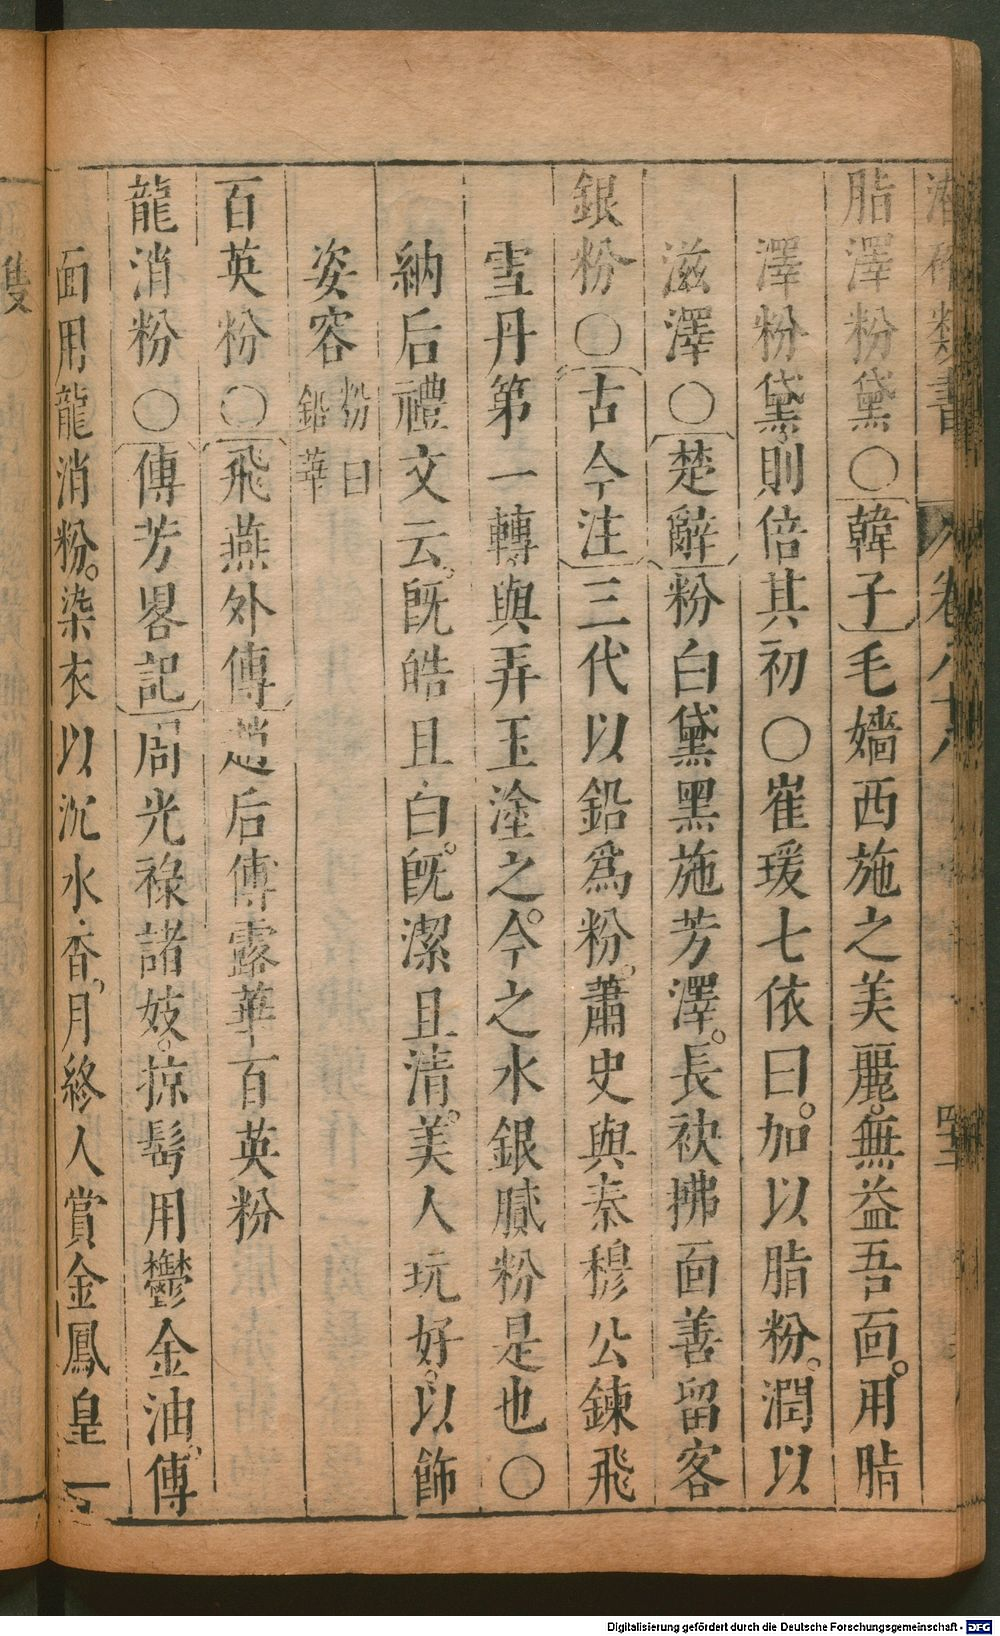 脂澤粉黛○〔韓子〕毛嬙西施之美麗。無益吾面。用脂
澤粉黛。則倍其初○崔瑗七依曰。加以脂粉。潤以
滋澤○〔楚辭〕粉白黛黑施芳澤。長袂拂面善留客
銀粉○〔古今注〕三代以鉛爲粉。蕭史與秦穆公鍊飛
雪丹第一轉與弄玉塗之。今之水銀膩粉是也○
納后禮文云。旣皓且白。旣潔且清。美人玩好。以飾
姿容 粉曰鉛華
百英粉○〔飛燕外傳〕趙后傅露華百英粉
龍消粉○〔傳芳畧記〕周光祿諸妓。掠髩用鬱金油。傅
面用龍消粉。染衣以沉水香。月終人賞金鳳皇一
隻
Digitalisierung gefördert durch die Deutsche Forschungsgemeinschaft - DFG